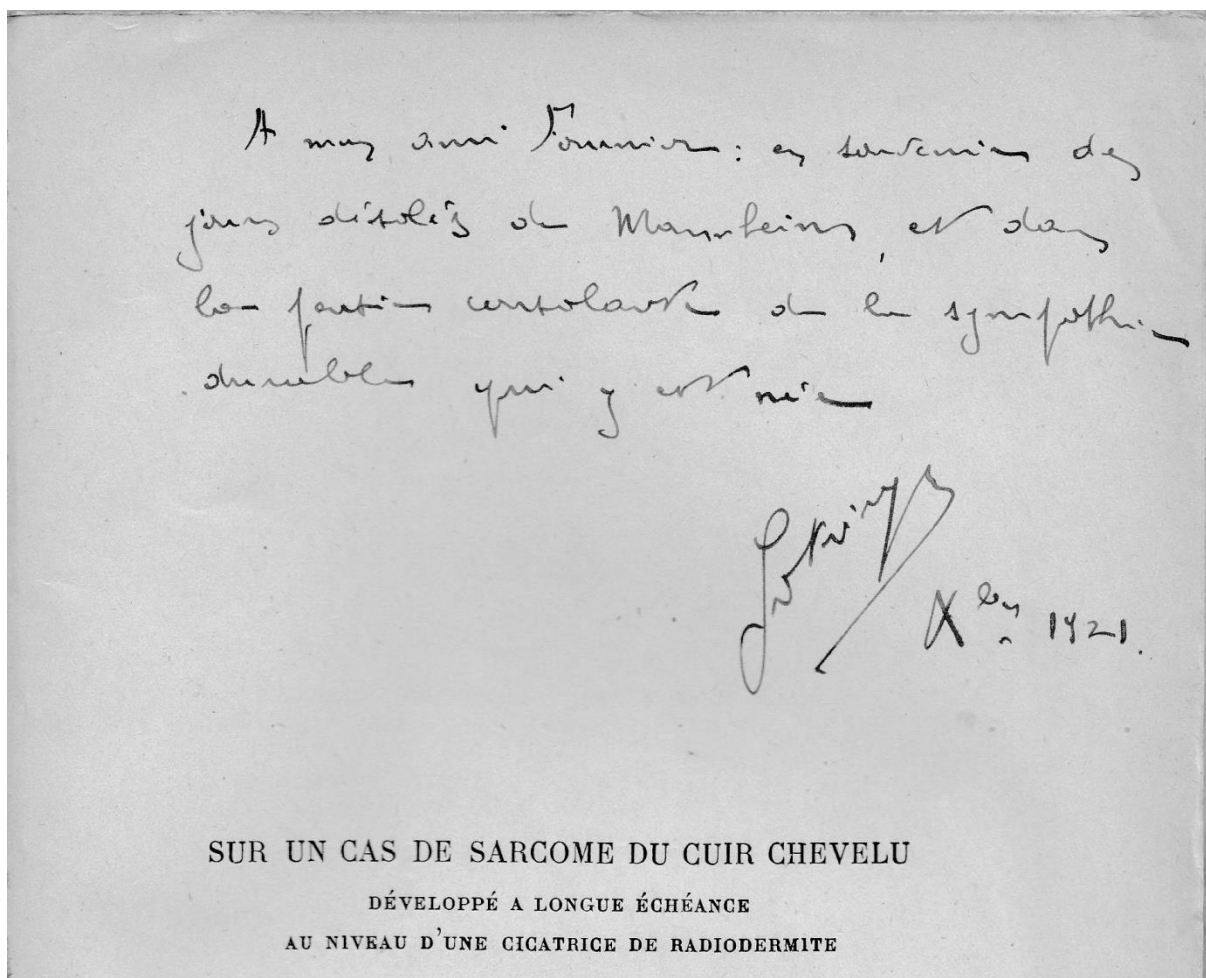 A mon ami Fournier : en souvenir des
jours désolés de Mannheim, et dans
la pensée consolante de la sympathie
durable qui y est née
Xbre 1921.
SUR UN CAS DE SARCOME DU CUIR CHEVELU
DÉVELOPPÉ A LONGUE ÉCHÉANCE
AU NIVEAU D'UNE CICATRICE DE RADIODERMITE